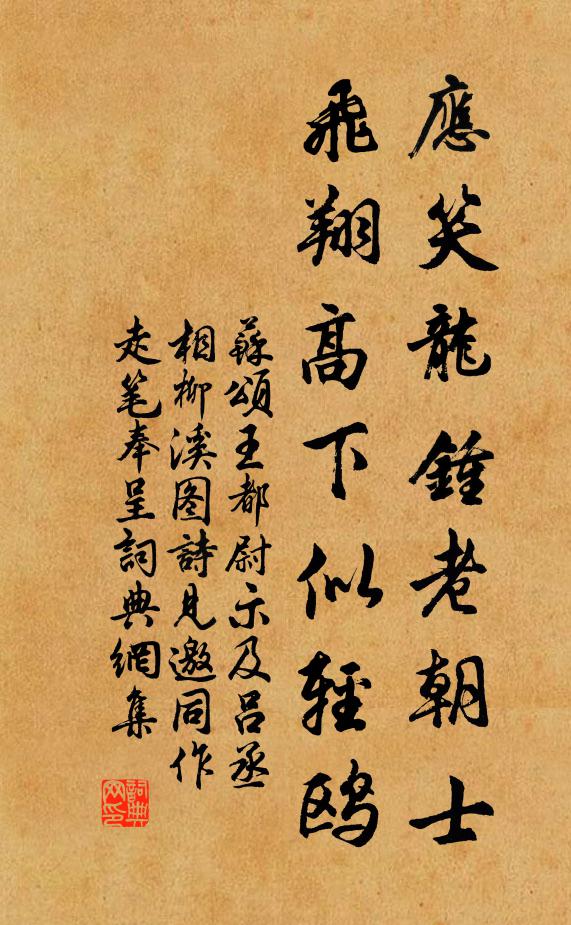 應笑龍鍾老朝士
飛翔高下似輕鷗
蘇頌王都尉示及呂丞
相柳溪图詩見邀同作
走笔奉呈詞典網集
詞典网印